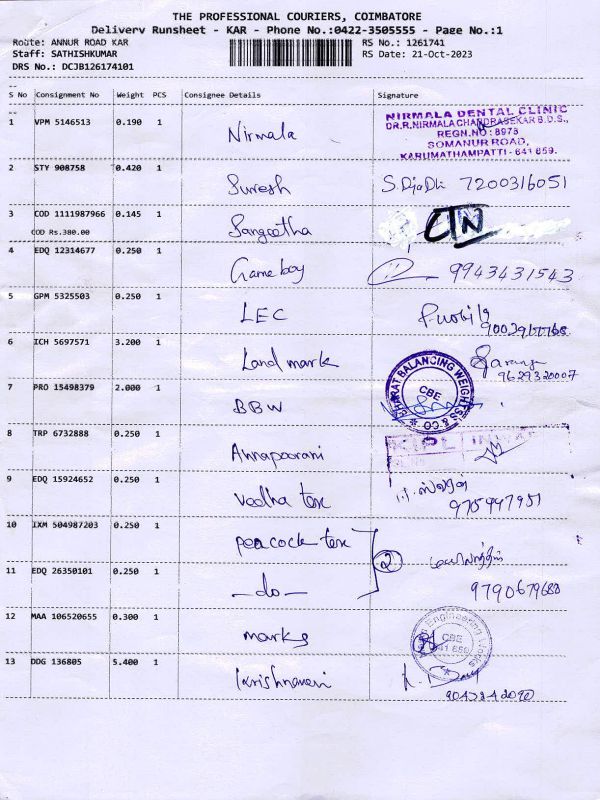 THE PROFESSIONAL COURIERS, COIMBATORE
Delivery Runsheet - KAR - Phone No.:0422-3505555 - Page No.:1
Route: ANNUR ROAD KAR RS No.: 1261741
Staff: SATHISHKUMAR RS Date: 21-Oct-2023
DRS No.: DCJB126174101
S No Consignment No Weight PCS Consignee Details Signature
1 VPM 5146513 0.190 1 Nirmala
NIRMALA DENTAL CLINIC
DR.R.NIRMALA CHANDRASEKAR B.D.S.,
REGN.NO: 8978
SOMANUR ROAD,
KARUMATHAMPATTI - 641 659.
2 STY 908758 0.420 1 Suresh 7200316051
3 COD 1111987966 0.145 1 Sangeetha CTN
COD Rs.380.00
4 EDQ 12314677 0.250 1 Game boy 9943431543
5 GPM 5325503 0.250 1 LEC
6 ICH 5697571 3.200 1 Land mark
9629320007
7 PRO 15498379 2.000 1 BBW
BHARAT BALANCING WEIGHTSS & CO. CBE
8 TRP 6732888 0.250 1 Annapoorani
9 EDQ 15924652 0.250 1 Vedha tex
975997951
10 IXM 504987203 0.250 1 peacock tex 2
11 EDQ 26350101 0.250 1 -do-
9790679680
12 MAA 106520655 0.300 1 marks
Engineering Works CBE 641 659
13 DDG 136805 5.400 1 Krishnaveni